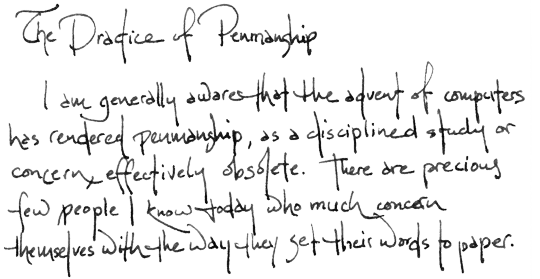 The Practice of Penmanship
I am generally awares that the advent of computers
has rendered penmanship, as a disciplined study or
concern, effectively obsolete. There are precious
few people I know today who much concern
themselves with the way they get their words to paper.